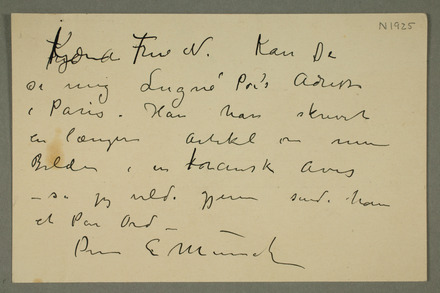 N 1925
Kjære Frue N. Kan De
si mig Lugné Poë's Adresse
i Paris. Han har skrevet
en længere Artikel om mine
Billeder i en fransk Avis
– så jeg vilde gjerne sende ham
et Par Ord –
E Munch